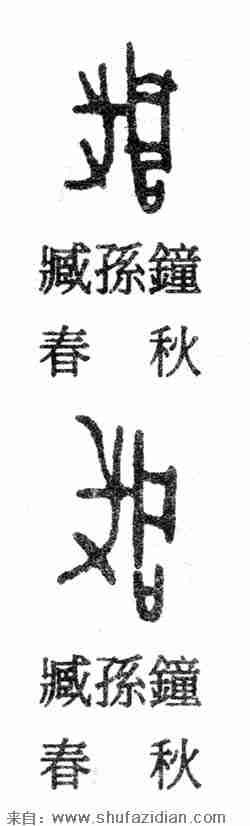 臧孫鐘
春秋
臧孫鐘
春秋
来自：www.shufazidian.com